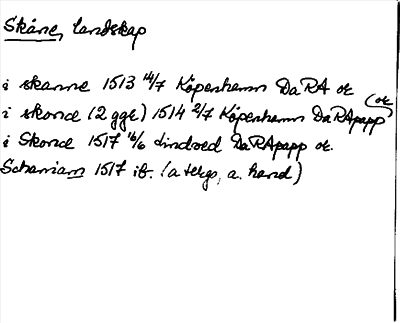 Skåne, landskap
i skanne 1513 14/7 Köpenhamn DaRA or
i skonce (2 ggr) 1514 2/7 Köpenhamn DaRApapp (or
i Skonce 1517 16/6 Lindved DaRApapp or.
Schaniam 1517 ib. (a tergo, a. hand)